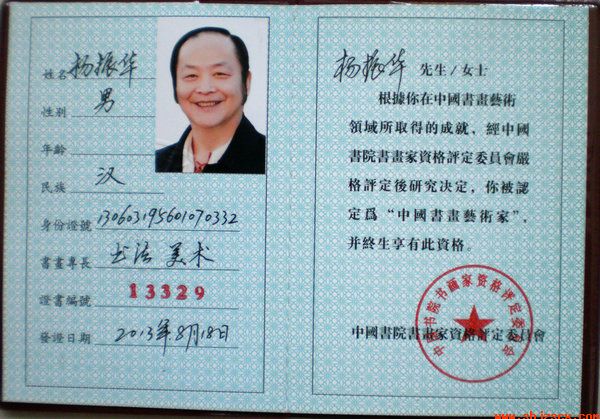 姓名 杨振华
性别 男
年齡
民族 汉
身份證號 130603195601070332
書畫專長 书法 美术
證書編號 13329
發證日期 2013年8月18日
杨振华 先生/女士
根據你在中國書畫藝術
領域所取得的成就，經中國
書院書畫家資格評定委員會嚴
格評定後研究决定，你被認
定爲“中國書畫藝術家”，
并終生享有此資格。
中國書院書畫家資格評定委員會
中国书院书画家资格评定委员会